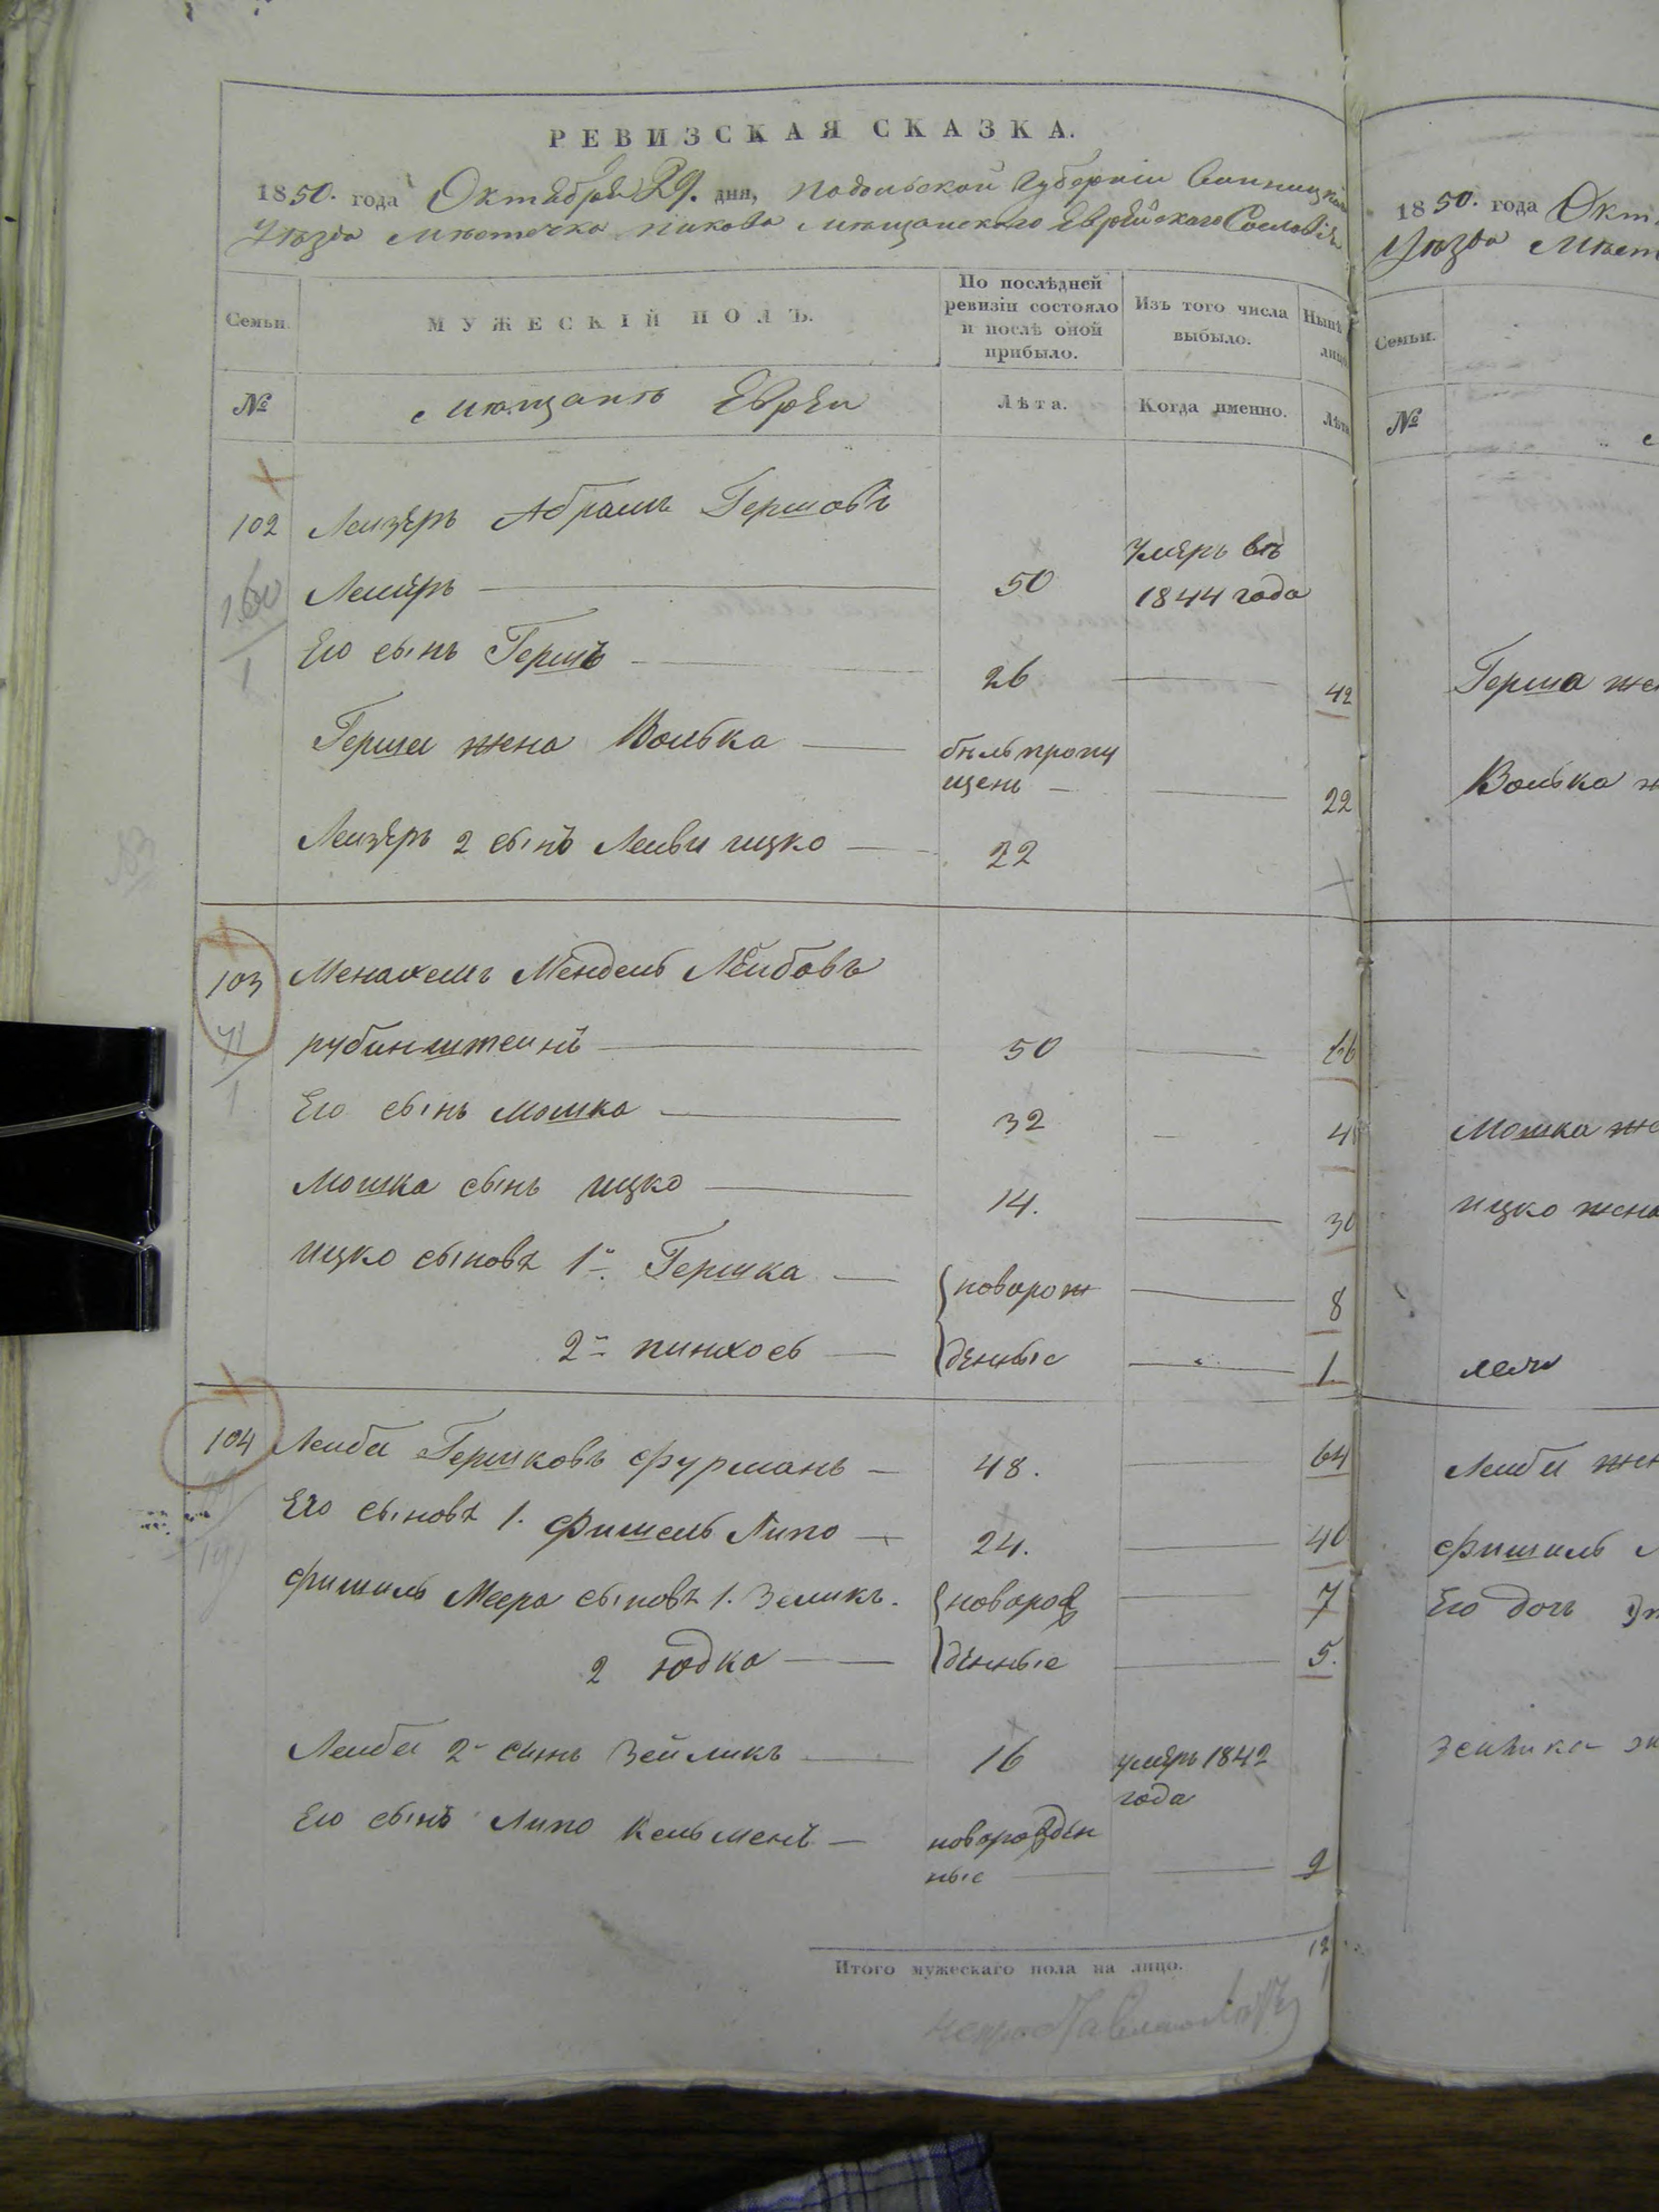 РЕВИЗСКАЯ СКАЗКА.
1850. года Октября 29. дня, Подольской Губерніи Винницкаго
Уѣзда Мѣстечка Пикова Мѣщанскаго Еврейскаго Сословія
Семьи.
МУЖЕСКІЙ ПОЛЪ.
По послѣдней ревизіи состояло и послѣ оной прибыло.
Изъ того числа выбыло.
Нынѣ
№
Мѣщанъ Евреи
Лѣта.
Когда именно.
Лѣта
102 Лейзеръ Абрамъ Гершовъ
умеръ въ
Лемеръ 50 1844 года
Его сынъ Гершъ 26 42
Герша жена Волька былъ пропу
щенъ 22
Лейзеръ 2 сынъ Лейви ицко 22
103 Менахемъ Мендель Лейбовъ
рубинштейнъ 50 66
Его сынъ мошка 32
Мошка сынъ ицко 14. 30
ицко сыновя 1й. Гершка новорож 8
2й пинхосъ денные 1
104 Лейба Гершковъ фурманъ 48. 64
Его сыновя 1. Фишель Липо 24. 40
фишель Меера сыновя 1. Зеликъ. новорож 7
2 юдка денные 5.
Лейба 2й сынъ Зейликъ 16 умеръ 1842
года
Его сынъ Липо Кельменъ новорожден
ные 9
Итого мужескаго пола на лицо. 12
1850. года Окт
Уѣзда Мѣст
Семьи.
№
Герша же
Волька
Мошка же
ицко жена
Лейби жен
фишель
Его дочь